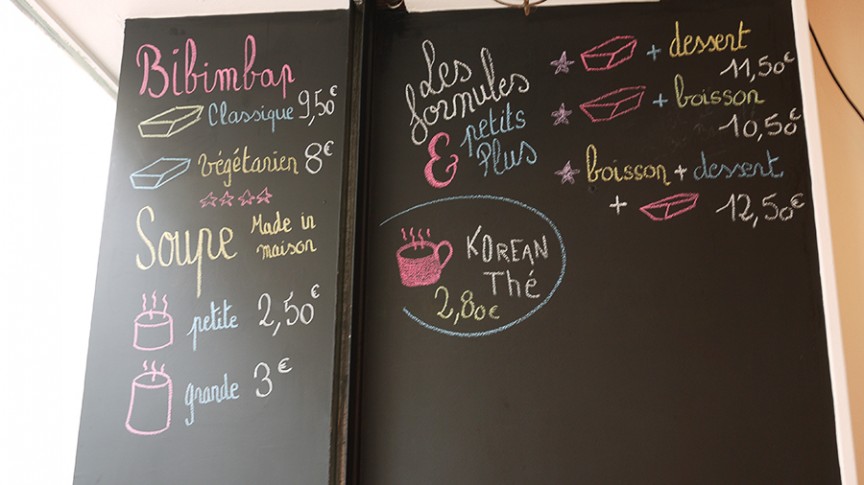 Bibimbap
Classique 9,50€
végétarien 8€
Soupe Made in
maison
petite 2,50€
grande 3€
Les
formules
& petits
Plus
+ dessert
11,50€
+ boisson
10,50€
boisson + dessert
+ 12,50€
KOREAN
Thé
2,80€